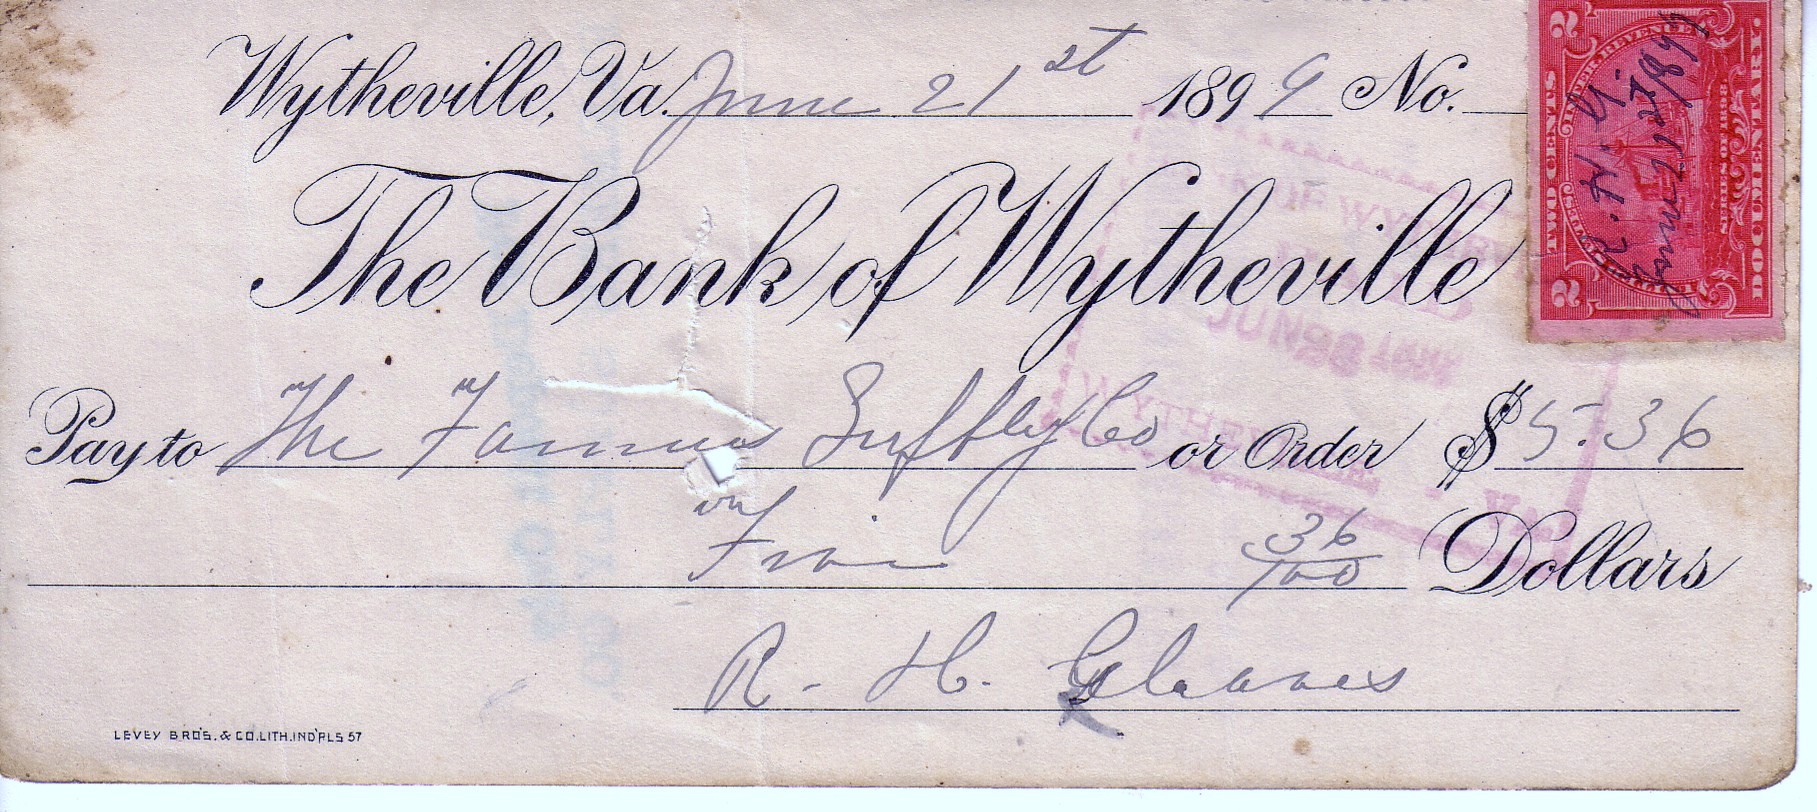 Wytheville, Va. June 21st 1899 No.
The Bank of Wytheville
Pay to The Farmers Supply Co or Order $5.36
Five 36/100 Dollars
R. H. Gleaves
LEVEY BRO'S. & CO. LITH. IND'PLS 57
2 INTER. REVENUE 2
TWO CENTS
SERIES OF 1898
DOCUMENTARY.
R. H. G.
June 21st/1899
OF WYTHEVILLE
JUN 23 1899
WYTHEVILLE
VA